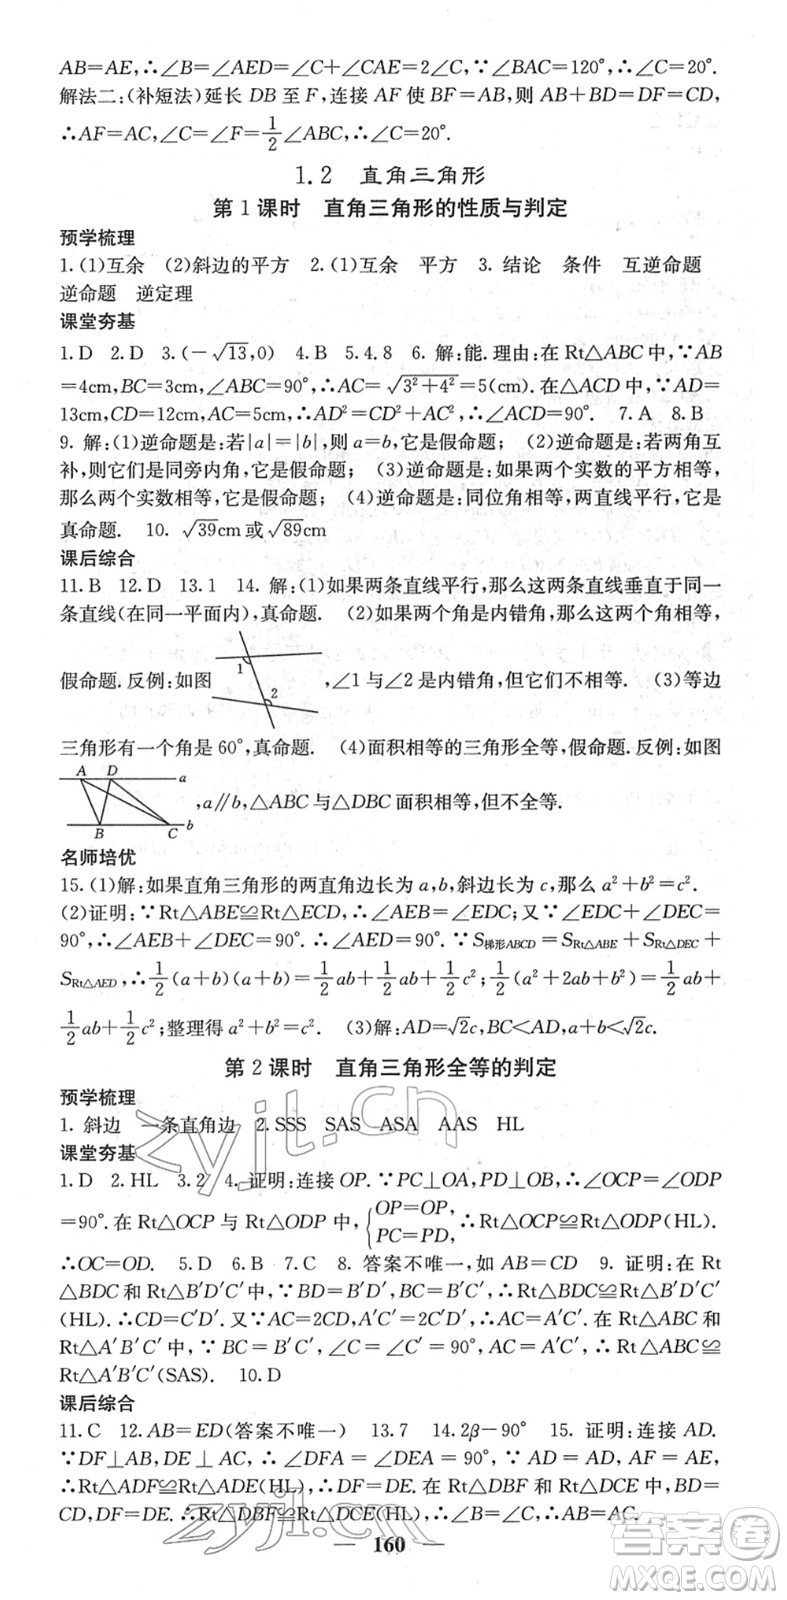 AB=AE,∴∠B=∠AED=∠C+∠CAE=2∠C,∵∠BAC=120°,∴∠C=20°.
解法二:(补短法)延长 DB 至 F,连接 AF 使 BF=AB,则 AB+BD=DF=CD,
∴AF=AC,∠C=∠F=1/2∠ABC,∴∠C=20°.
1.2 直角三角形
第 1 课时 直角三角形的性质与判定
预学梳理
1.(1)互余 (2)斜边的平方 2.(1)互余 平方 3. 结论 条件 互逆命题
逆命题 逆定理
课堂夯基
1.D 2.D 3.(-√13,0) 4.B 5.4.8 6. 解:能. 理由:在 Rt△ABC 中,∵AB
=4cm,BC=3cm,∠ABC=90°,∴AC=√(3²+4²)=5(cm). 在△ACD 中,∵AD=
13cm,CD=12cm,AC=5cm,∴AD²=CD²+AC²,∴∠ACD=90°. 7.A 8.B
9. 解:(1)逆命题是:若|a|=|b|,则 a=b,它是假命题; (2)逆命题是:若两角互
补,则它们是同旁内角,它是假命题; (3)逆命题是:如果两个实数的平方相等,
那么两个实数相等,它是假命题; (4)逆命题是:同位角相等,两直线平行,它是
真命题. 10. √39cm或√89cm
课后综合
11.B 12.D 13.1 14. 解:(1)如果两条直线平行,那么这两条直线垂直于同一
条直线(在同一平面内),真命题. (2)如果两个角是内错角,那么这两个角相等,
假命题. 反例:如图 1 2 ,∠1与∠2是内错角,但它们不相等. (3)等边
三角形有一个角是 60°,真命题. (4)面积相等的三角形全等,假命题. 反例:如图
A D a B C b ,a∥b,△ABC 与△DBC 面积相等,但不全等.
名师培优
15.(1)解:如果直角三角形的两直角边长为 a,b,斜边长为 c,那么 a²+b²=c².
(2)证明:∵Rt△ABE≌Rt△ECD,∴∠AEB=∠EDC;又∵∠EDC+∠DEC=
90°,∴∠AEB+∠DEC=90°.∴∠AED=90°.∵S梯形ABCD=SRt△ABE+SRt△DEC+
SRt△AED,∴1/2(a+b)(a+b)=1/2ab+1/2ab+1/2c²;1/2(a²+2ab+b²)=1/2ab+
1/2ab+1/2c²;整理得 a²+b²=c². (3)解:AD=√2c,BC<AD,a+b<√2c.
第 2 课时 直角三角形全等的判定
预学梳理
1. 斜边 一条直角边 2.SSS SAS ASA AAS HL
课堂夯基
1.D 2.HL 3.2 4. 证明:连接 OP.∵PC⊥OA,PD⊥OB,∴∠OCP=∠ODP
=90°. 在 Rt△OCP 与 Rt△ODP 中,{OP=OP, PC=PD, ∴Rt△OCP≌Rt△ODP(HL).
∴OC=OD. 5.D 6.B 7.C 8. 答案不唯一,如 AB=CD 9. 证明:在 Rt
△BDC 和 Rt△B′D′C′中,∵BD=B′D′,BC=B′C′,∴Rt△BDC≌Rt△B′D′C′
(HL).∴CD=C′D′. 又∵AC=2CD,A′C′=2C′D′,∴AC=A′C′. 在 Rt△ABC 和
Rt△A′B′C′中,∵BC=B′C′,∠C=∠C′=90°,AC=A′C′,∴Rt△ABC≌
Rt△A′B′C′(SAS). 10.D
课后综合
11.C 12.AB=ED(答案不唯一) 13.7 14.2β-90° 15. 证明:连接 AD.
∵DF⊥AB,DE⊥AC,∴∠DFA=∠DEA=90°,∵AD=AD,AF=AE,
∴Rt△ADF≌Rt△ADE(HL),∴DF=DE. 在 Rt△DBF 和 Rt△DCE 中,BD=
CD,DF=DE.∴Rt△DBF≌Rt△DCE(HL),∴∠B=∠C,∴AB=AC.
— 160 —
zyjl.cn
zyjl.cn
答案圈
MXQE.COM